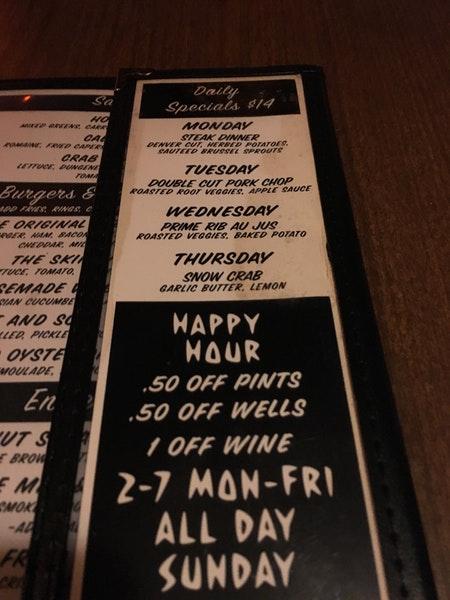 Daily
Specials $14
MONDAY
STEAK DINNER
DENVER CUT, HERBED POTATOES,
SAUTEED BRUSSEL SPROUTS
TUESDAY
DOUBLE CUT PORK CHOP
ROASTED ROOT VEGGIES, APPLE SAUCE
WEDNESDAY
PRIME RIB AU JUS
ROASTED VEGGIES, BAKED POTATO
THURSDAY
SNOW CRAB
GARLIC BUTTER, LEMON
HAPPY
HOUR
.50 OFF PINTS
.50 OFF WELLS
1 OFF WINE
2-7 MON-FRI
ALL DAY
SUNDAY
Sa
HO
MIXED GREENS, CARR
CA
ROMAINE, FRIED CAPER
CRAB
LETTUCE, DUNGENE
TOMA
Burgers &
ADD FRIES, RINGS, C
E ORIGINAL
RGER, HAM, BACON
CHEDDAR, MI
THE SKIN
TUCE, TOMATO,
SEMADE
SIAN CUCUMBE
T AND SO
LLED, PICKLE
OYSTE
MOULADE,
En
UT S
E BROW
E M
SMOK
-AD
FR
CRIS